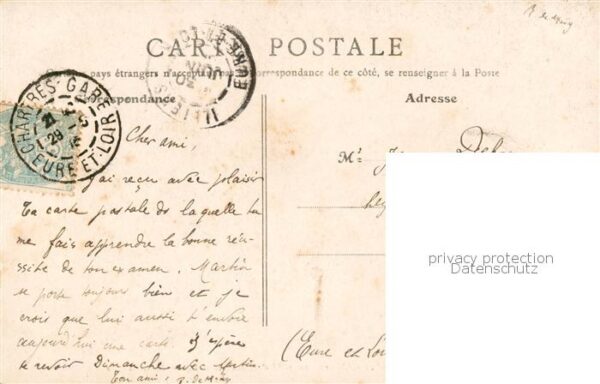 CARTE POSTALE
pays étrangers n'acceptant pas la correspondance de ce côté, se renseigner à la Poste
Correspondance
Adresse
CHARTRES-GARE
EURE-ET-LOIR
ILLIERS
EURE-ET-LOIR
Cher ami,
J'ai reçu avec plaisir
ta carte postale de laquelle tu
me fais apprendre la bonne réus-
site de ton examen. Martin
se porte toujours bien et je
crois que lui aussi t'envoie
aujourd'hui une carte. J'espère
te revoir Dimanche avec Martin.
Ton ami :
Mr
(Eure et Loir
privacy protection
Datenschutz